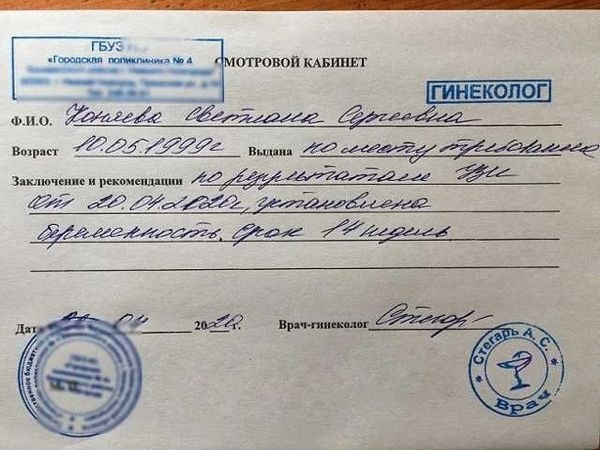 ГБУЗ
«Городская поликлиника № 4
СМОТРОВОЙ КАБИНЕТ
ГИНЕКОЛОГ
Ф.И.О. Коняева Светлана Сергеевна
Возраст 10.05.1999г Выдана по месту требования
Заключение и рекомендации по результатам УЗИ
от 20.04.2020г, установлена
беременность. срок 14 недель.
Дата 04 2020г. Врач-гинеколог Стегар
Стегарь А. С.
Врач